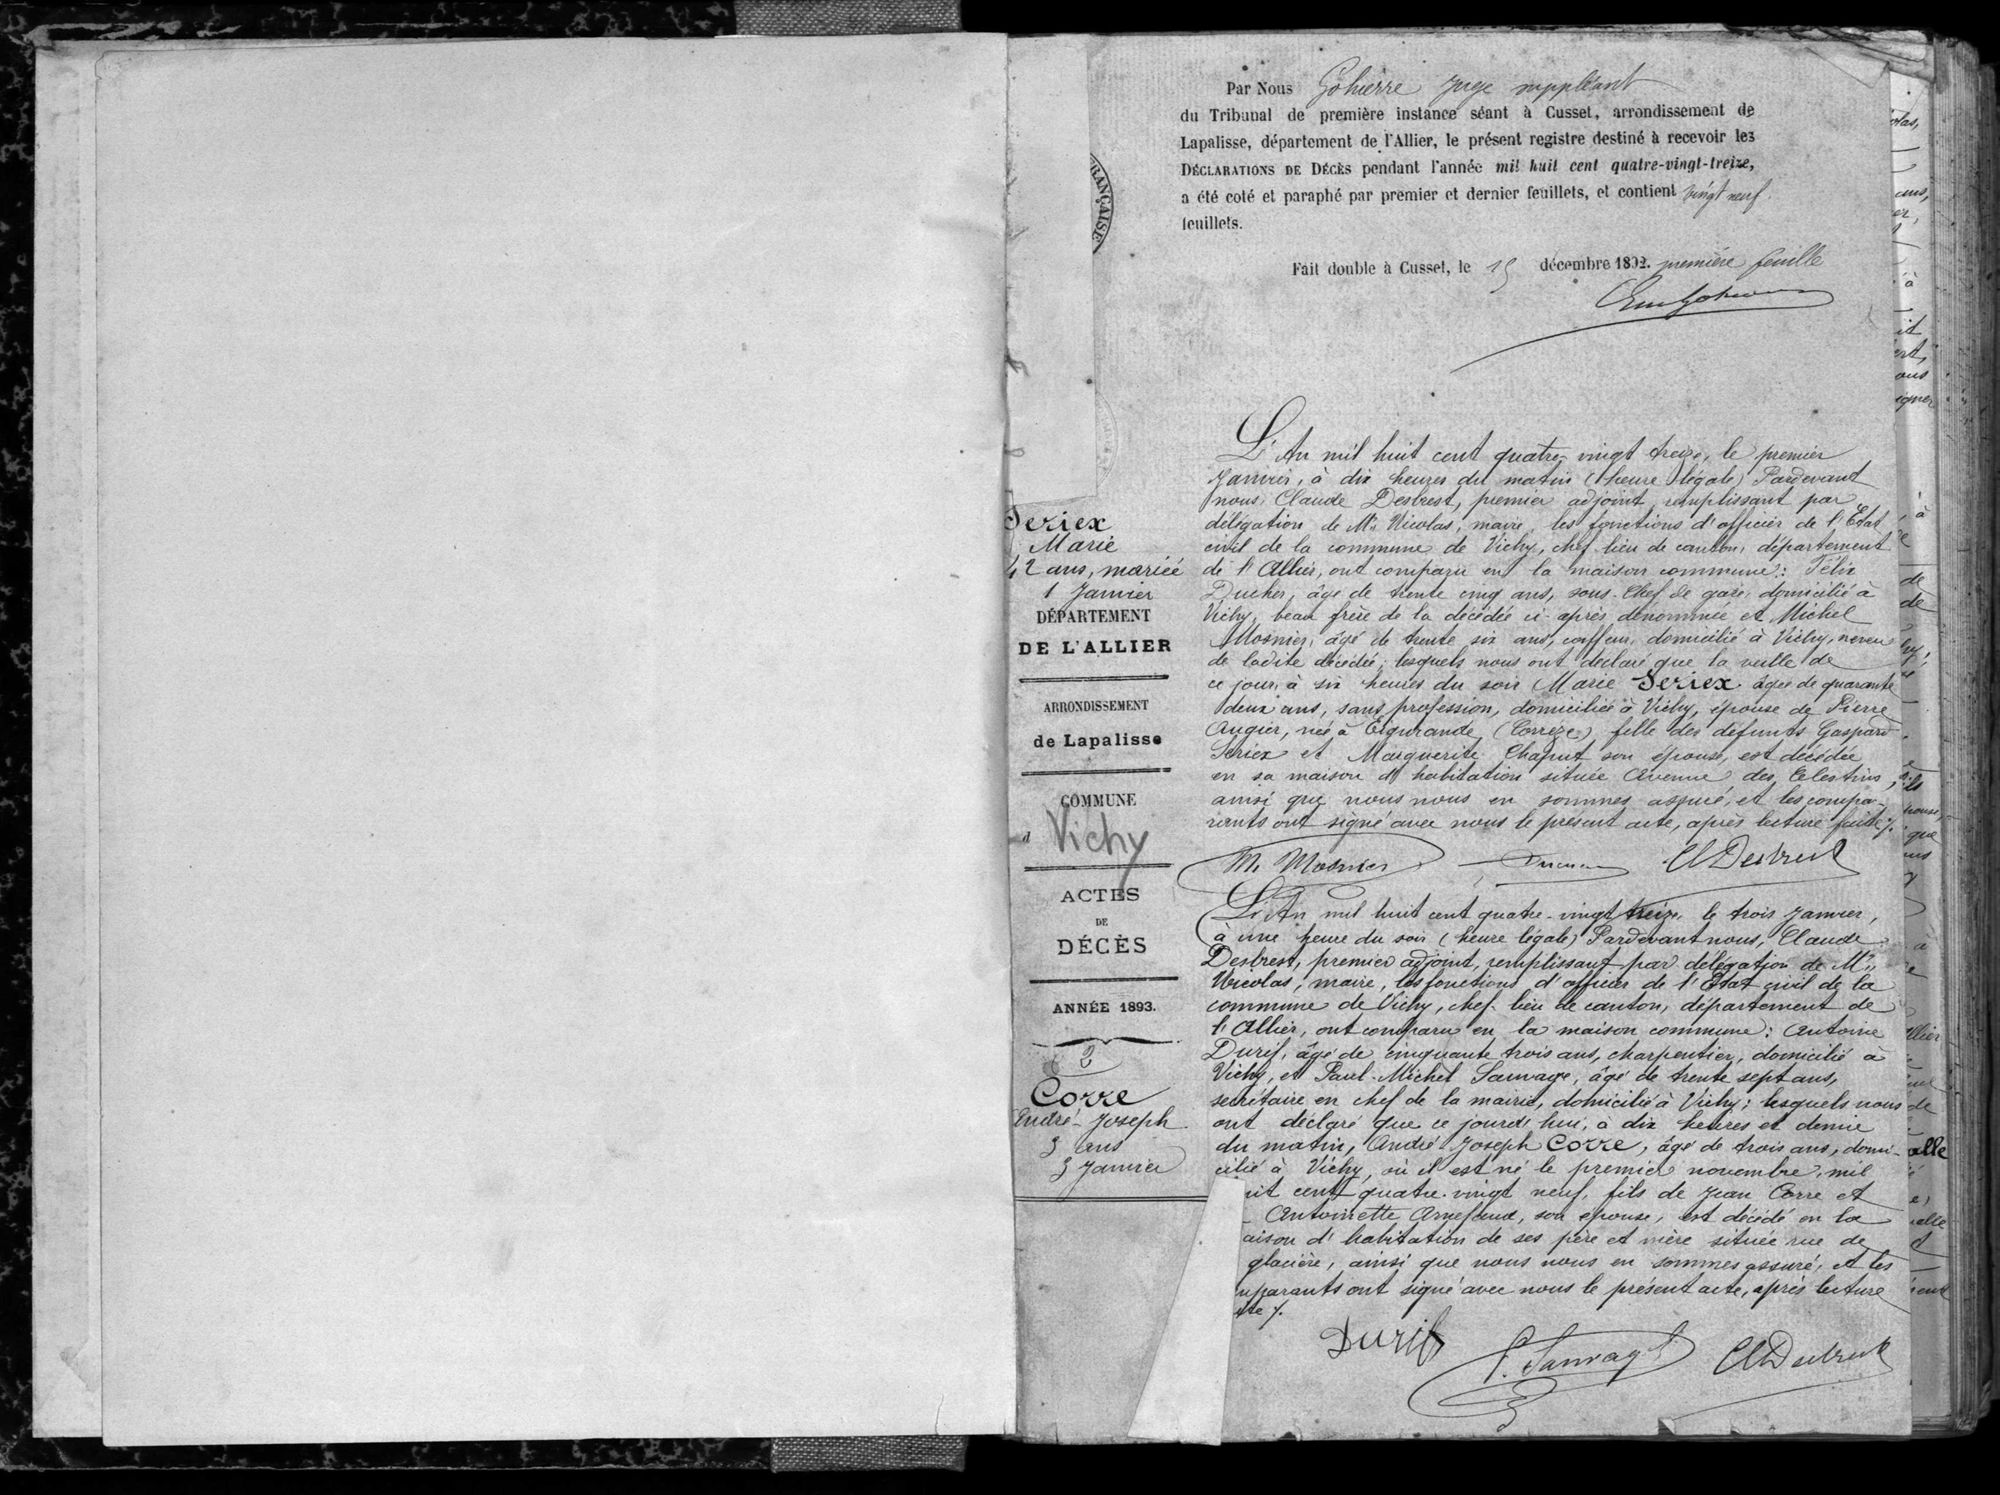 Par Nous Gohierre juge suppléant
du Tribunal de première instance séant à Cusset, arrondissement de
Lapalisse, département de l'Allier, le présent registre destiné à recevoir les
DÉCLARATIONS DE DÉCÈS pendant l'année mil huit cent quatre-vingt-treize,
a été coté et paraphé par premier et dernier feuillets, et contient vingt neuf
feuillets.
Fait double à Cusset, le 15 décembre 1892. première feuille
FRANÇAISE
Seriex
Marie
42 ans, mariée
1 Janvier
DÉPARTEMENT
DE L'ALLIER
ARRONDISSEMENT
de Lapalisse
COMMUNE
d Vichy
ACTES
DE
DÉCÈS
ANNÉE 1893.
2
Corre
André-Joseph
3 ans
3 Janvier
L'An mil huit cent quatre-vingt treize, le premier
Janvier, à dix heures du matin (heure légale) Pardevant
nous, Claude Desbrest, premier adjoint remplissant par
délégation de Mr Nicolas, maire, les fonctions d'officier de l'Etat
civil de la commune de Vichy, chef-lieu de canton, département
de l'Allier, ont comparu en la maison commune: Félix
Ducher, âgé de trente cinq ans, sous-chef de gare, domicilié à
Vichy, beau frère de la décédée ci-après dénommée et Michel
Mosnier, âgé de trente six ans, coiffeur, domicilié à Vichy, neveu
de ladite décédée; lesquels nous ont déclaré que la veille de
ce jour, à six heures du soir Marie Seriex âgée de quarante
deux ans, sans profession, domiciliée à Vichy, épouse de Pierre
Augier, née à Eygurande (Corrèze) fille des défunts Gaspard
Seriex et Marguerite Chaput son épouse, est décédée
en sa maison d'habitation située Avenue des Célestins,
ainsi que nous nous en sommes assuré, et les compa-
rants ont signé avec nous le présent acte, après lecture faite ./.
M. Mosnier Cl Desbrest
L'An mil huit cent quatre-vingt treize, le trois Janvier,
à une heure du soir (heure légale) Pardevant nous, Claude
Desbrest, premier adjoint, remplissant par délégation de Mr
Nicolas, maire, les fonctions d'officier de l'Etat civil de la
commune de Vichy, chef-lieu de canton, département de
l'Allier, ont comparu en la maison commune: Antoine
Durif, âgé de cinquante trois ans, charpentier, domicilié à
Vichy, et Paul-Michel Sauvage, âgé de trente sept ans,
secrétaire en chef de la mairie, domicilié à Vichy; lesquels nous
ont déclaré que ce jourd'hui, à dix heures et demie
du matin, André Joseph Corre, âgé de trois ans, domi-
cilié à Vichy, où il est né le premier novembre, mil
uit cent quatre-vingt neuf, fils de Jean Corre et
Antoinette son épouse, est décédé en la
aison d'habitation de ses père et mère située rue de
glacière, ainsi que nous nous en sommes assuré, et les
mparants ont signé avec nous le présent acte, après lecture
ite ./.
Durif P. Sauvage Cl Desbrest